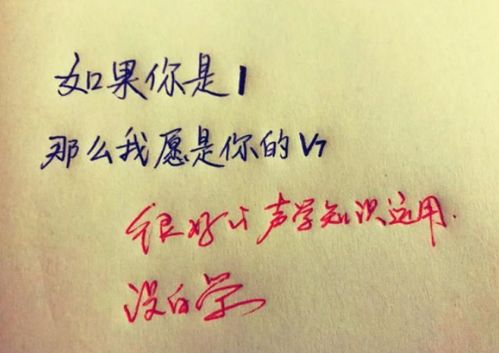 如果你是I
那么我愿是你的V7
很好的声学知识运用.
没白学